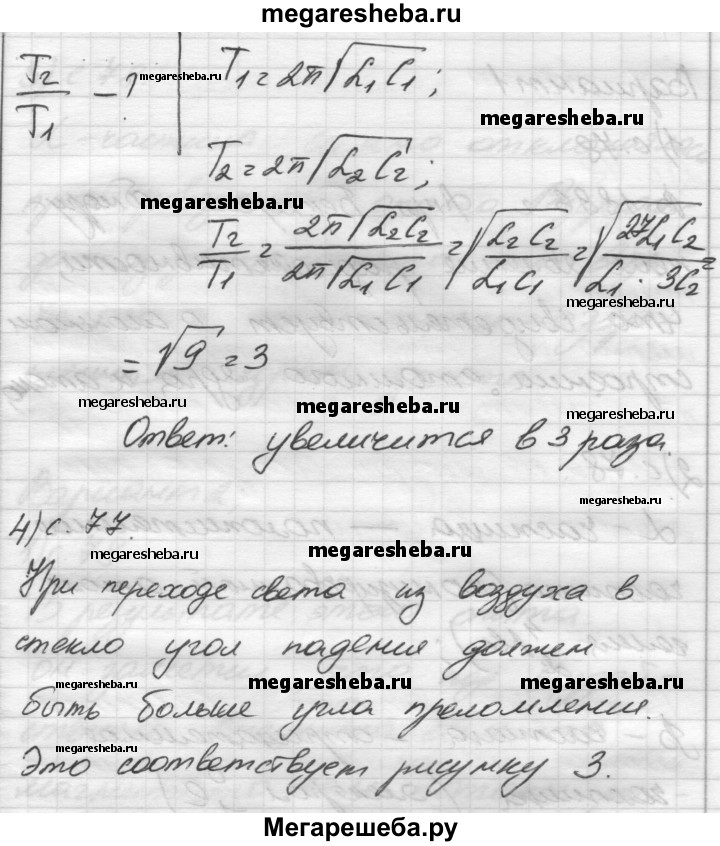 megaresheba.ru
T₂/T₁ - ?
T₁ = 2π√(L₁C₁);
megaresheba.ru
megaresheba.ru
T₂ = 2π√(L₂C₂);
megaresheba.ru
T₂/T₁ = 2π√(L₂C₂)/2π√(L₁C₁) = √(L₂C₂/L₁C₁) = √(27L₁C₂/L₁·3C₂) =
megaresheba.ru
= √9 = 3
megaresheba.ru
megaresheba.ru
megaresheba.ru
Ответ: увеличится в 3 раза.
megaresheba.ru
4) с. 77.
megaresheba.ru
megaresheba.ru
При переходе света из воздуха в
стекло угол падения должен
megaresheba.ru
megaresheba.ru
megaresheba.ru
быть больше угла преломления.
megaresheba.ru
Это соответствует рисунку 3.
Мегарешеба.ру